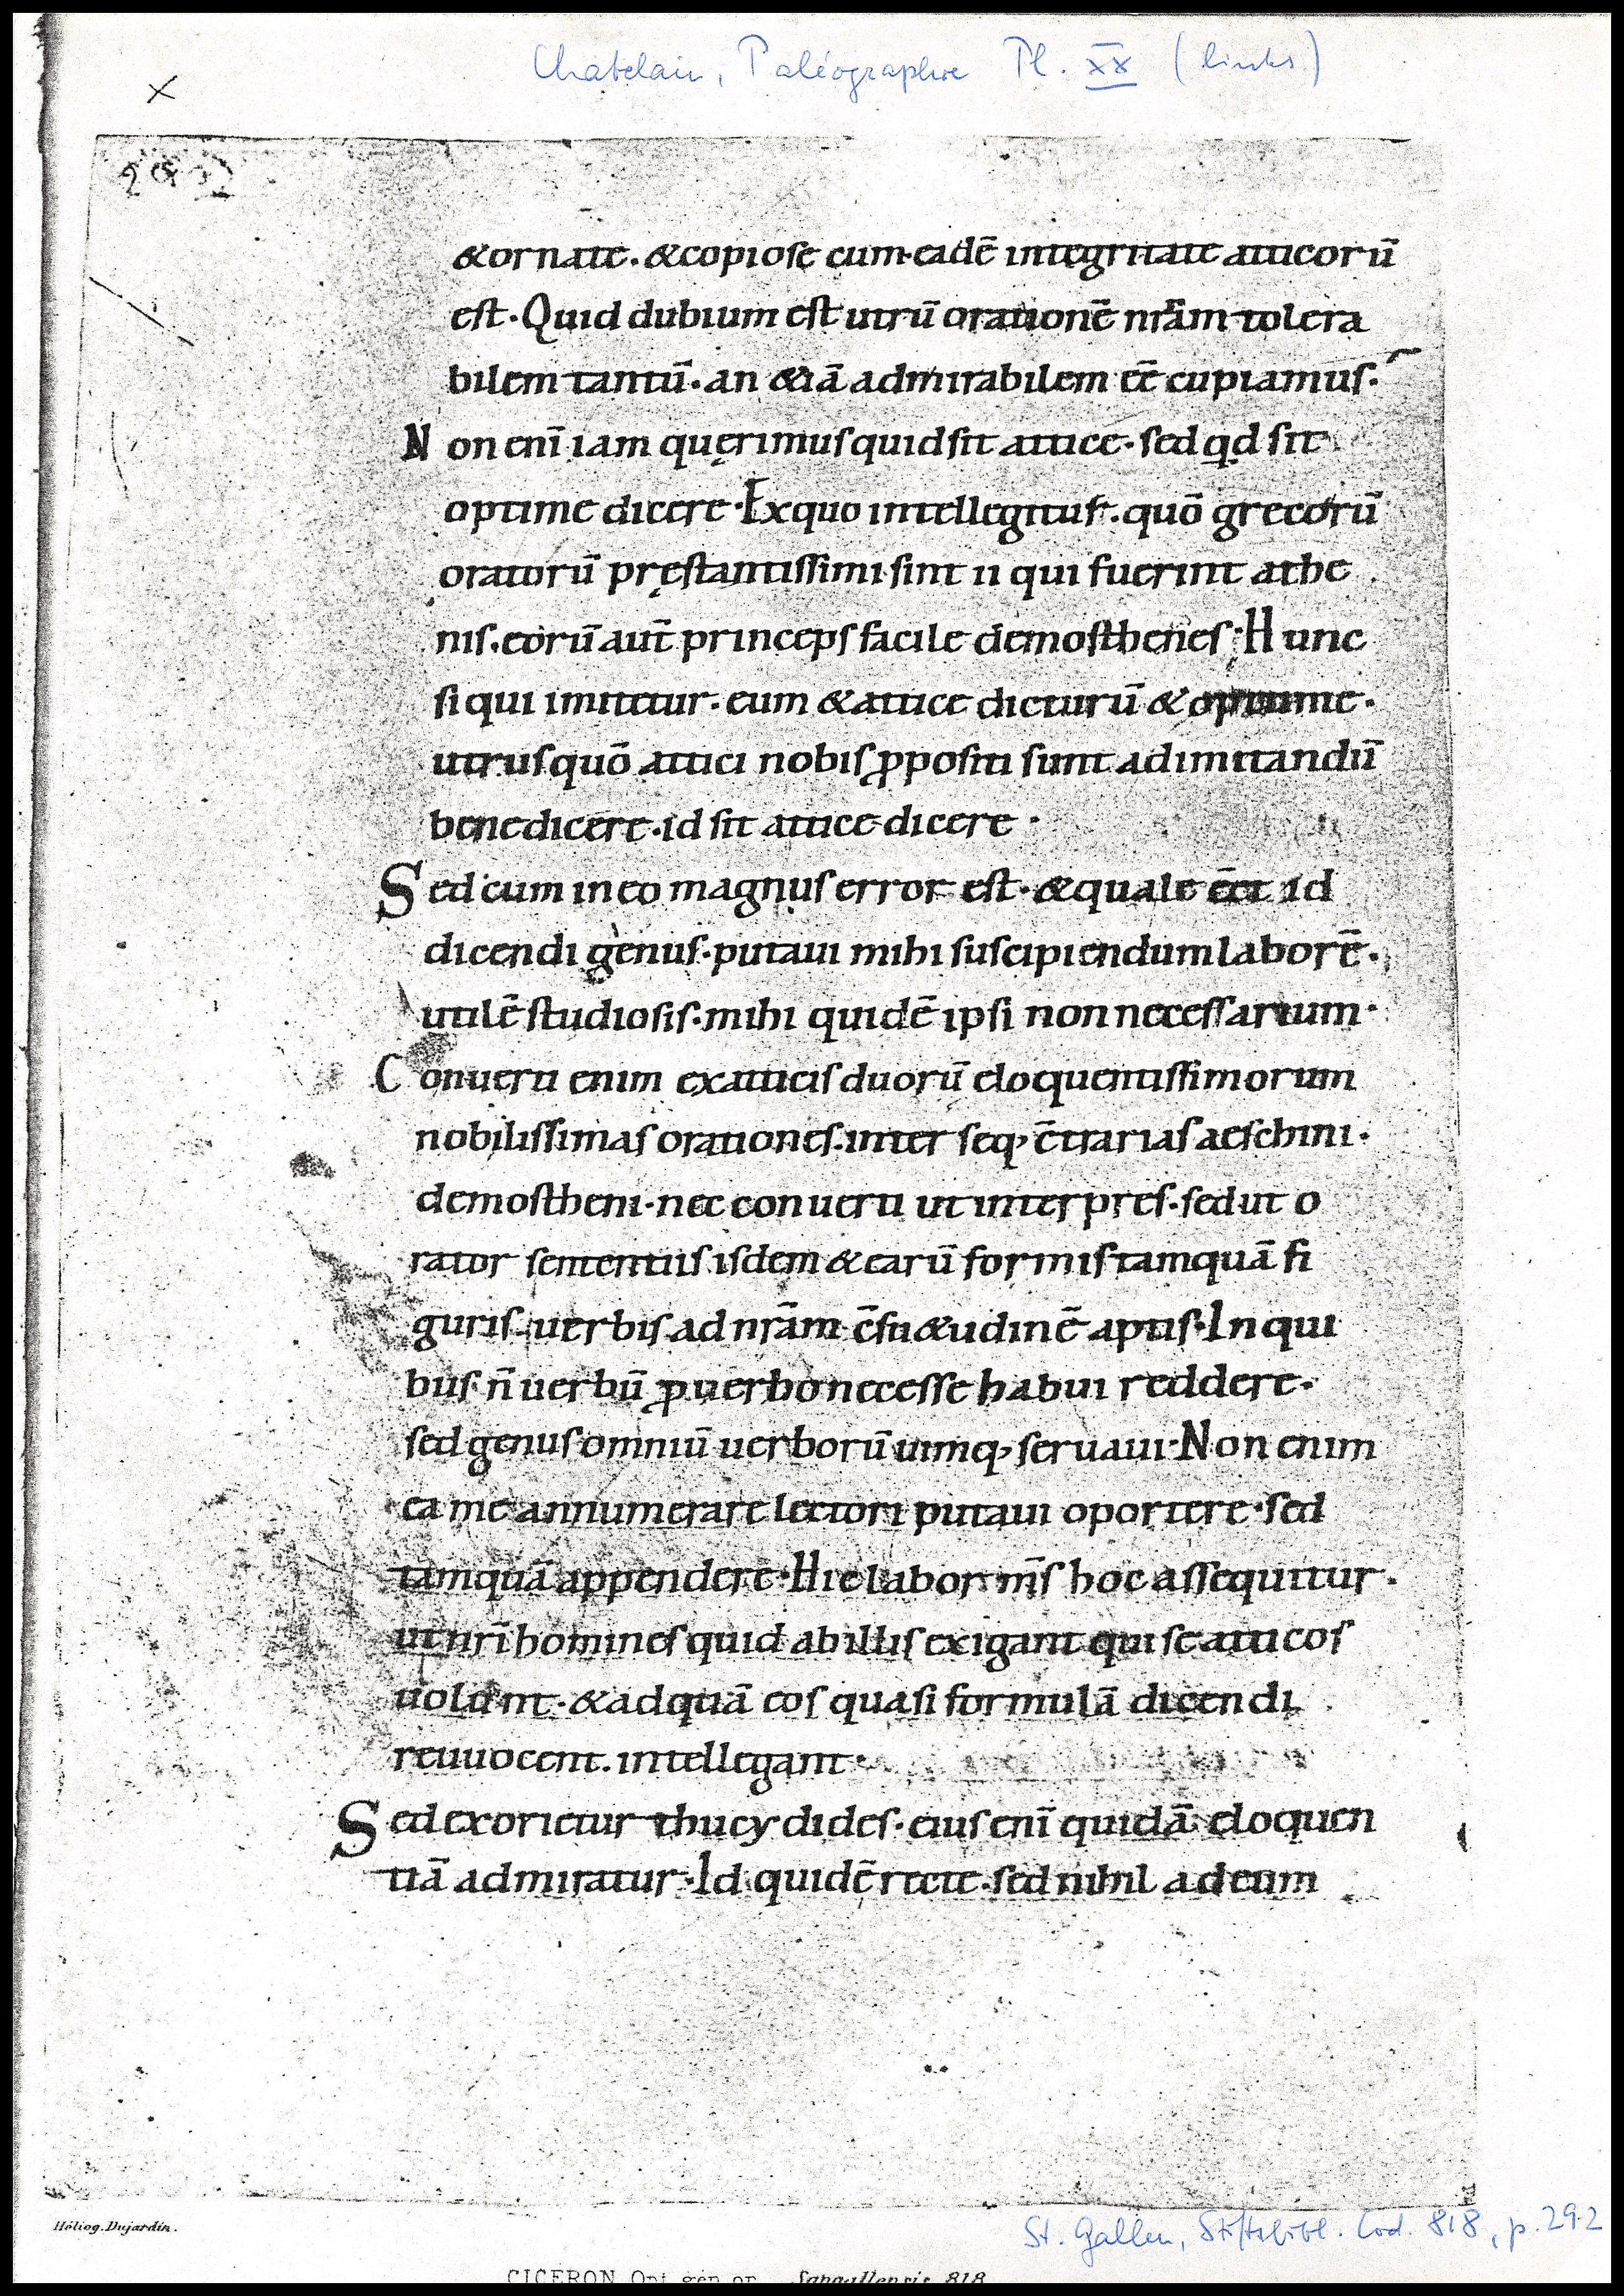 Chatelain, Paléographie Pl. XX (links)
292
&ornate. &copiose cum eadē integritate atticorū
est. Quid dubium est utrū orationē nrām tolera
bilem tantū. an &iā admirabilem ēē cupiamus.
Non enī iam quęrimus quid sit attice. sed qd sit
optime dicere. Ex quo intellegitur. quō grecorū
oratorū pręstantissimi sint ii qui fuerint athe
nis. eorū aut̄ princeps facile demosthenes. Hunc
si qui imitetur. eum &attice dicturū & optime.
utrusquō attici nobis ꝓpositi sunt ad imitandū
bene dicere. id sit attice dicere.
Sed cum in eo magnus error est. &quale ēēt id
dicendi genus. putaui mihi suscipiendum laborē.
utilē studiosis. mihi quidē ipsi non necessarium.
Conuerti enim ex atticis duorū eloquentissimorum
nobilissimas orationes. inter seq; c̄trarias aeschini.
demostheni. nec conuerti ut interpres. sed ut o
rator sententiis isdem & earū formis tamquā fi
guris. uerbis ad nrām c̄su&udinē aptis. In qui
bus n̄ uerbū ꝓ uerbo necesse habui reddere.
sed genus omniū uerborū uimq; seruaui. Non enim
ea me annumerare lectori putaui oportere. sed
tamquā appendere. Hic labor m̄s hoc assequitur.
ut nrī homines quid ab illis exigant qui se atticos
uolunt. &ad quā eos quasi formulā dicendi
reuuocent. intellegant.
Sed exorietur thucydides. eius enī quidā eloquen
tiā admiratur. Id quidē recte. sed nihil ad eum
Héliog. Dujardin.
St. Gallen, Stiftsbibl. Cod. 818, p. 292
CICERON Opt. gen. or. Sangallensis 818